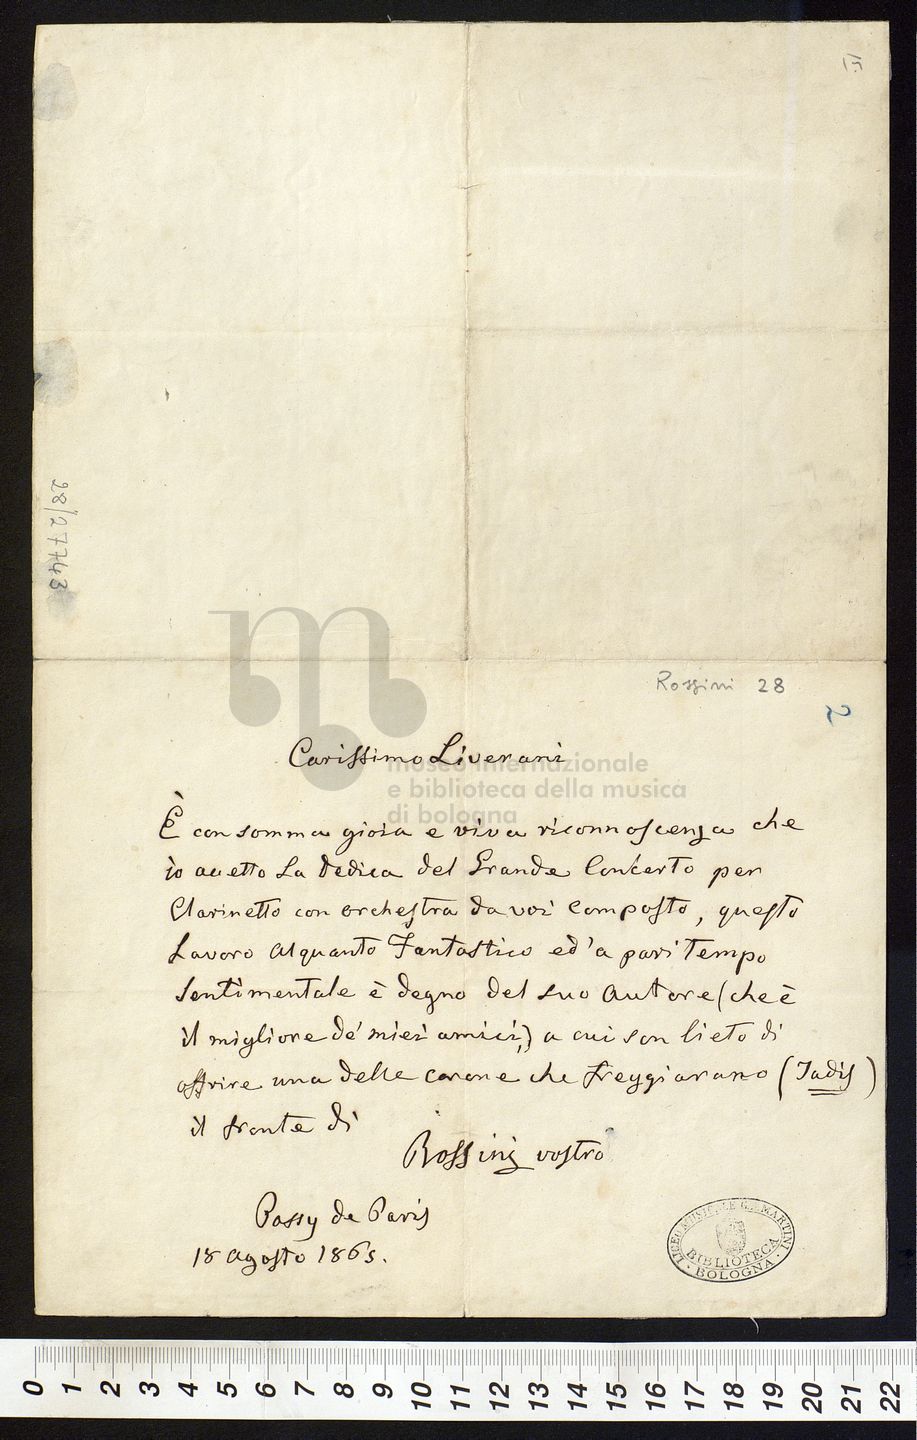 28/27743
Rossini 28
2
Carissimo Liverani
museo internazionale
e biblioteca della musica
di bologna
È con somma gioia e viva riconnoscenza che
io accetto La Dedica del Grande Concerto per
Clarinetto con orchestra da voi Composto, questo
Lavoro Alquanto Fantastico ed'a pari Tempo
Sentimentale è degno del suo Autore (che è
il migliore de' miei amici,) a cui son lieto di
offrire una delle corone che freggiarano (Jadis)
il fronte di
Rossini vostro
Passy de Paris
18 Agosto 1865.
LICEO MUSICALE G.B. MARTINI
BIBLIOTECA
BOLOGNA
0 1 2 3 4 5 6 7 8 9 10 11 12 13 14 15 16 17 18 19 20 21 22